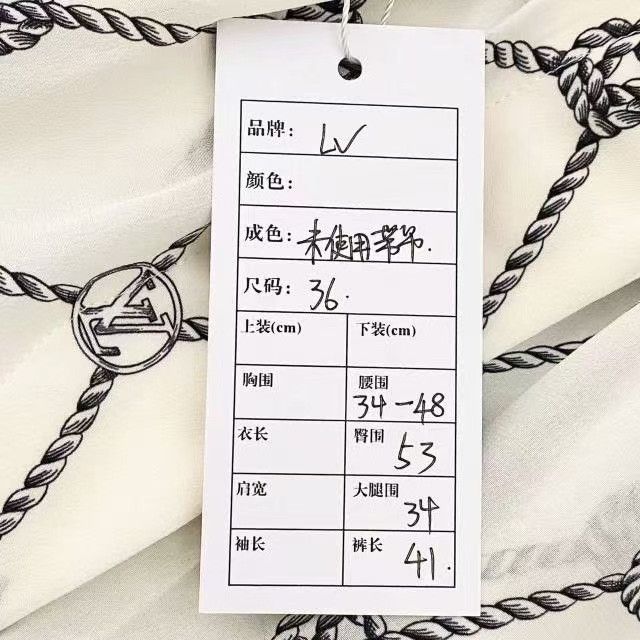 品牌： LV
颜色：
成色： 未使用带吊.
尺码： 36.
上装(cm) 下装(cm)
胸围 腰围 34-48
衣长 臀围 53
肩宽 大腿围 34
袖长 裤长 41.
LV